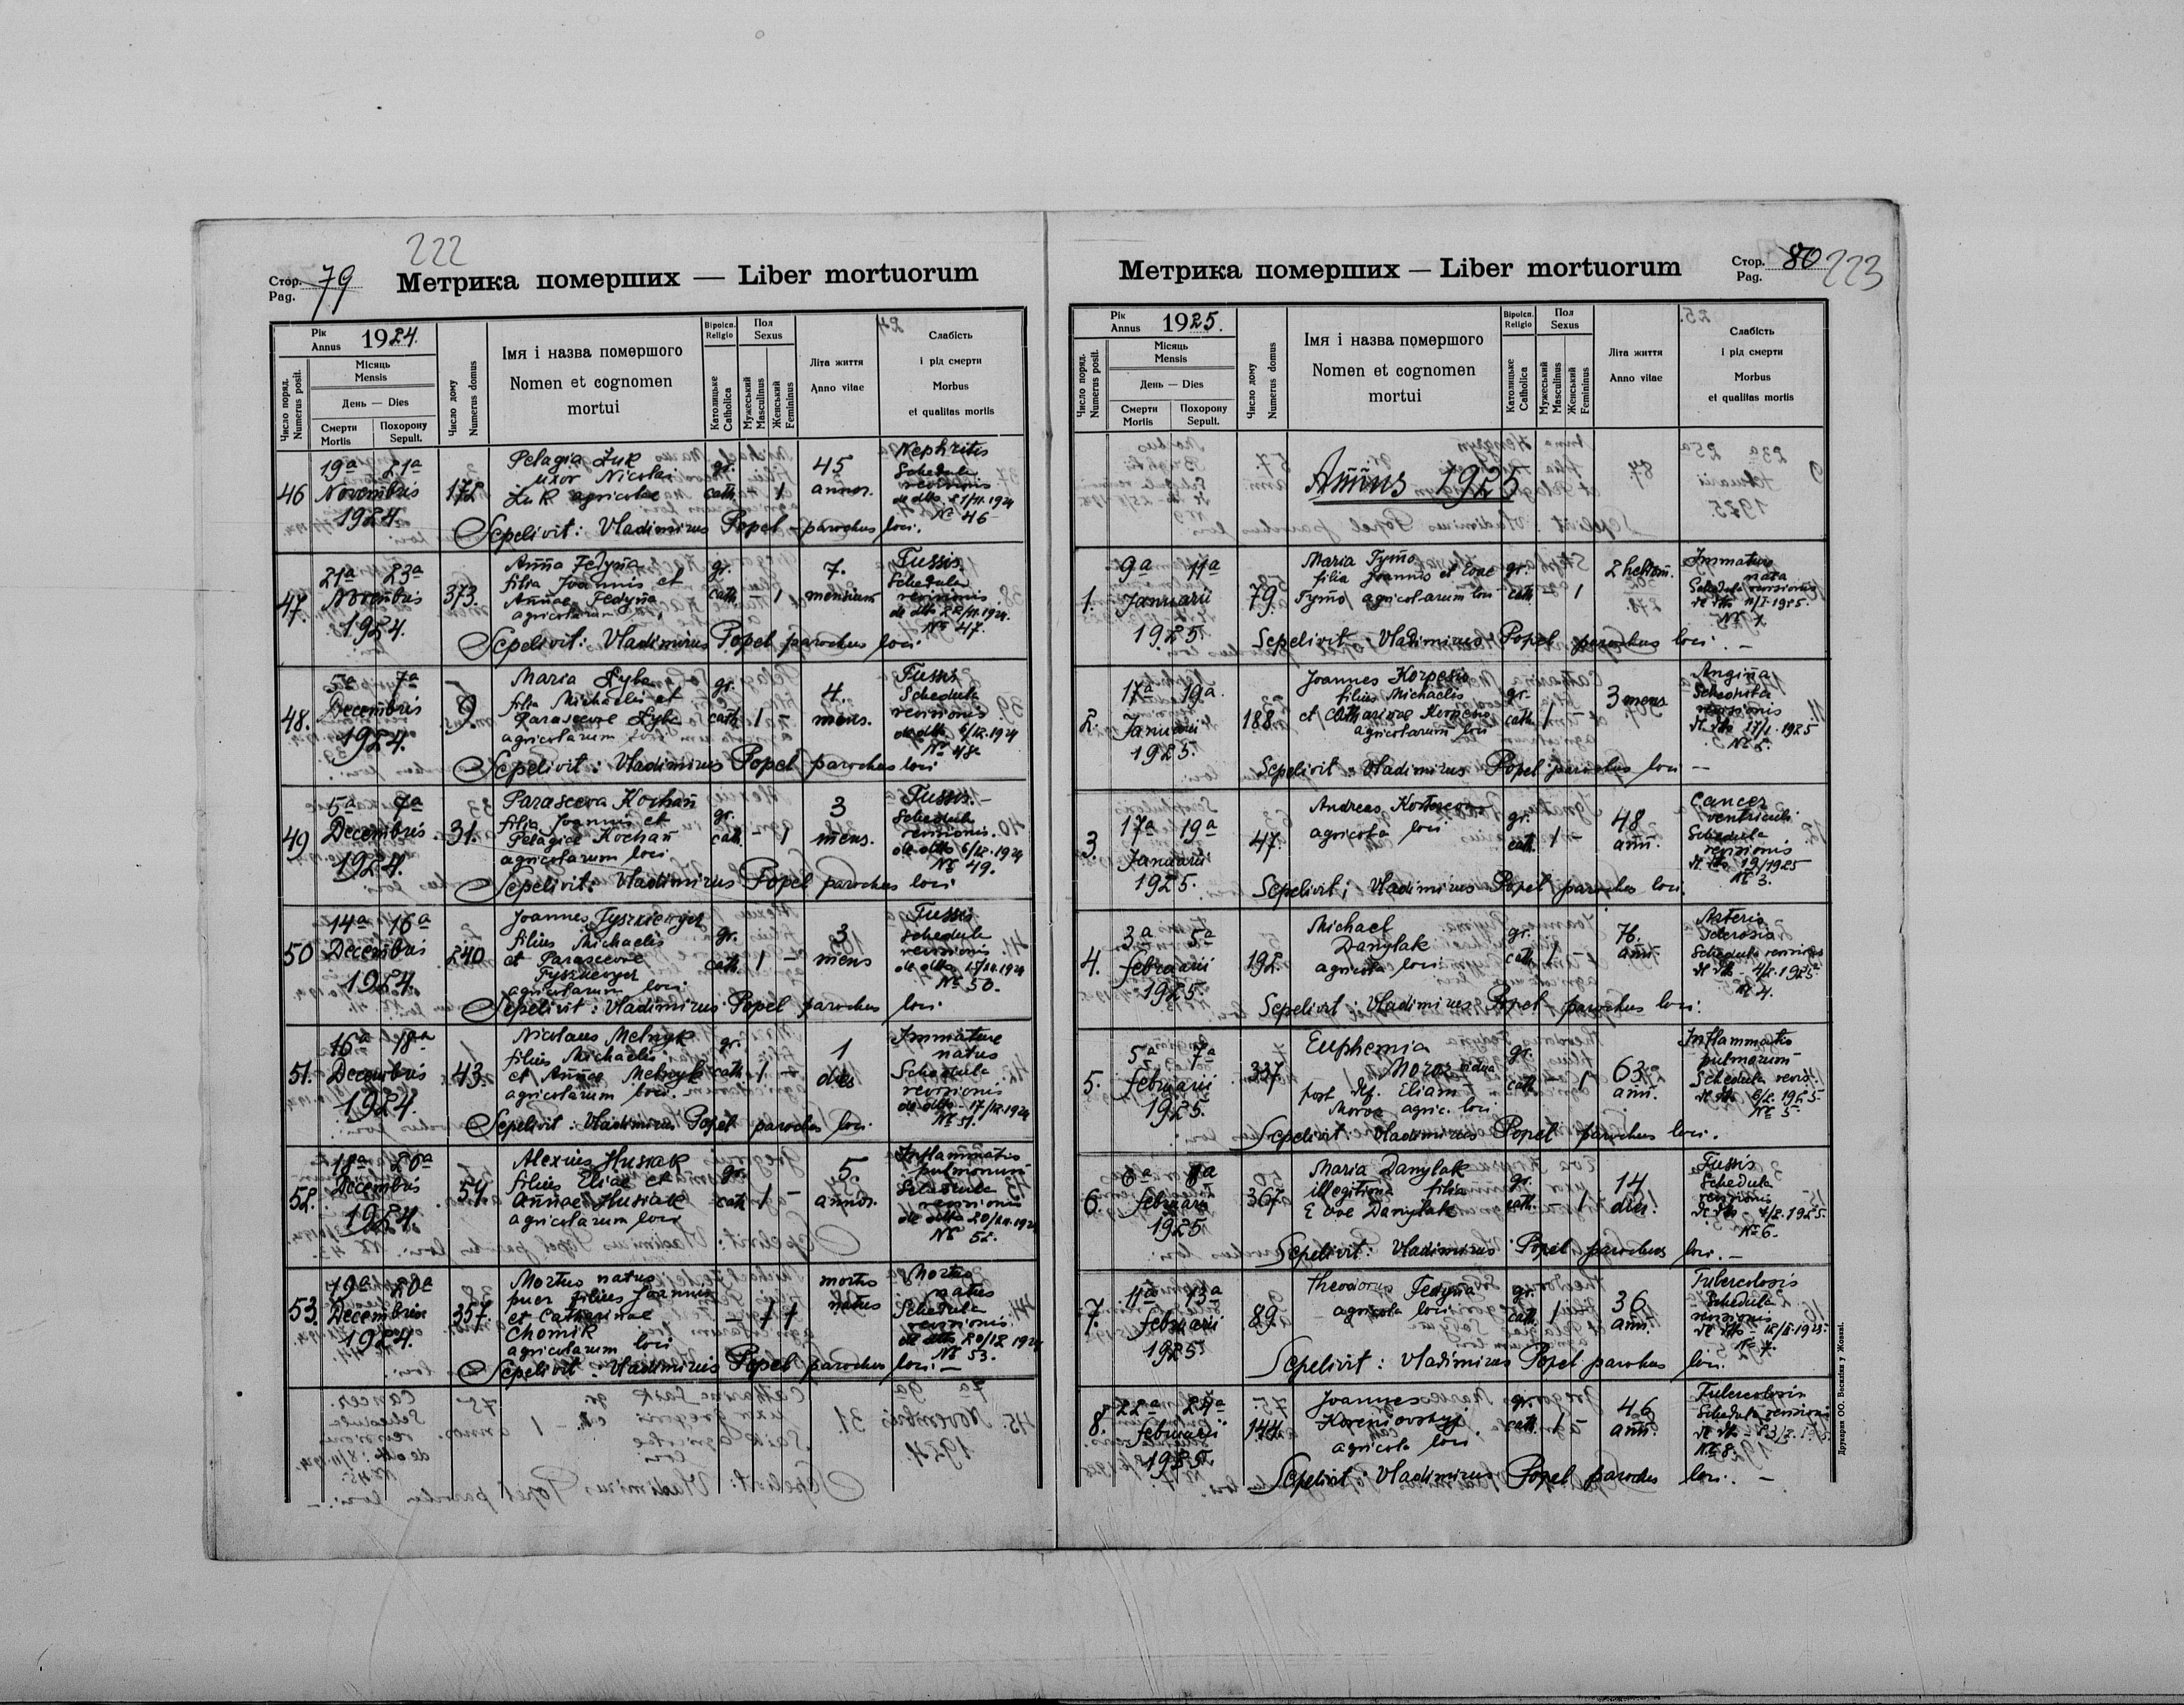 222
Стор. Pag. 79
Метрика померших — Liber mortuorum
Рік Annus 1924.
Місяць Mensis
День — Dies
Смерти Mortis
Похорону Sepult.
Число поряд. Numerus posit.
Число дому Numerus domus
Імя і назва помершого
Nomen et cognomen
mortui
Віроісп. Religio
Католицьке Catholica
Пол Sexus
Мужеський Masculinus
Женський Femininus
Літа життя
Anno vitae
Слабість
і рід смерти
Morbus
et qualitas mortis
46 19a 21a Novembris 1924. 172
Pelagia Żuk
uxor Nicolai
Żuk agricolae
gr. cath. 1
45 annor.
Nephritis
Schedula
revisionis
de dto 21/11.1924
№ 46
Sepelivit: Vladimirus Popel – parochus loci.
47. 21a 23a Novembris 1924. 373.
Anna Fedyna
filia Joannis et
Annae Fedyna
agricolarum
gr. cath. – 1
7. mensium
Tussis.
Schedula
revisionis
de dto 22/11.1924.
№ 47.
Sepelivit: Vladimirus Popel parochus loci
48. 5a 7a Decembris 1924. 9.
Maria
filia Michaelis et
Parascevae
agricolarum loci
gr. cath. 1 –
4. mens.
Tussis
Schedula
revisionis
de dto 6/12.1924
№ 48.
Sepelivit: Vladimirus Popel parochus loci
49 5a 7a Decembris 1924. 31.
Parasceva Kochan
filia Joannis et
Pelagiae Kochan
agricolarum loci
gr. cath. – 1
3 mens.
Tussis.
Schedula
revisionis.
de dto 6/12.1924
№ 49.
Sepelivit: Vladimirus Popel parochus loci
50 14a 16a Decembris 1924. 240
Joannes
filius Michaelis
et Parascevae
agricolarum loci
gr. cath. 1 –
3 mens
Tussis
schedula
revisionis
№ 50.
Sepelivit: Vladimirus Popel parochus loci
51. 16a 18a Decembris 1924. 43.
Nicolaus Melnyk
filius Michaelis
et Annae Melnyk
agricolarum loci.
gr. cath. 1 –
1 dies
Immature
natus
Schedula
revisionis
de dto – 17/12.1924
№ 51.
Sepelivit: Vladimirus Popel parochus loci
52. 18a 20a Decembris 1924. 54.
Alexius Husiak
filius Eliae et
Annae Husiak
agricolarum loci
gr. cath. 1 –
5. annor.
Inflammatio
pulmonum
Schedula
revisionis
de dto 20/12.1924
№ 52.
53. 19a 20a Decembris 1924. 357.
Mortuo natus
puer filius Joannis
et Catharinae
Chomik
agricolarum loci
mortuo natus
Mortuo
natus
Schedula
revisionis
de dto 20/12 1924
№ 53.
Sepelivit: Vladimirus Popel parochus loci. –
Метрика померших — Liber mortuorum
Стор. Pag. 80
223
Рік Annus 1925.
Місяць Mensis
День — Dies
Смерти Mortis
Похорону Sepult.
Число поряд. Numerus posit.
Число дому Numerus domus
Імя і назва помершого
Nomen et cognomen
mortui
Віроісп. Religio
Католицьке Catholica
Пол Sexus
Мужеський Masculinus
Женський Femininus
Літа життя
Anno vitae
Слабість
і рід смерти
Morbus
et qualitas mortis
Annus 1925
1. 9a 11a Januarii 1925. 79.
Maria Tymo
filia Joannis et Evae
Tymo agricolarum loci
gr. cath. – 1
2 hebdom.
Immature
nata
Schedula revisionis
de dto 11/I.1925.
№ 1
Sepelivit: Vladimirus Popel parochus loci. –
2. 17a 19a Januarii 1925. 188
Joannes
filius Michaelis
et Catharinae
agricolarum loci
gr. cath. 1 –
3 mens
Angina
Schedula
revisionis
de dto 17/I.1925
№ 2.
Sepelivit: Vladimirus Popel parochus loci –
3. 17a 19a Januarii 1925. 47.
Andreas
agricola loci
gr. cath. 1 –
48 ann.
Cancer
ventriculi
Schedula
revisionis
№ 3.
Sepelivit: Vladimirus Popel parochus loci.
4. 3a 5a februarii 1925. 192.
Michael
Danylak
agricola loci
gr. cath. 1 –
76. ann.
Arterio
sclerosis
Schedula revisionis
№ 4.
Sepelivit: Vladimirus Popel parochus loci.
5. 5a 7a februarii 1925. 337.
Euphemia
Moroz vidua
post def. Eliam
Moroz agric. loci
gr. cath. – 1
63 ann.
Inflammatio
pulmonum
Schedula revis.
№ 5
Sepelivit Vladimirus Popel parochus loci.
6. 6a 8a februarii 1925 367.
Maria Danylak
illegitima filia
Evae Danylak
gr. cath. – 1
14 dier.
Tussis
Schedula
revisionis
№ 6.
Sepelivit: Vladimirus Popel parochus loci. –
7. 11a 13a februarii 1925 89.
Theodorus Fedyna
agricola loci
gr. cath. 1 –
36 ann.
Tuberculosis
Schedula
revisionis
№ 7.
Sepelivit: Vladimirus Popel parochus loci.
8. 22a 24a februarii 1925. 144.
Joannes
Koreniovskyj
agricola loci
gr. cath. 1 –
46 ann.
Tuberculosis
Schedula revisionis
№ 8.
Sepelivit: Vladimirus Popel parochus loci. –
Друкарня ОО. Василіян у Жовкві.